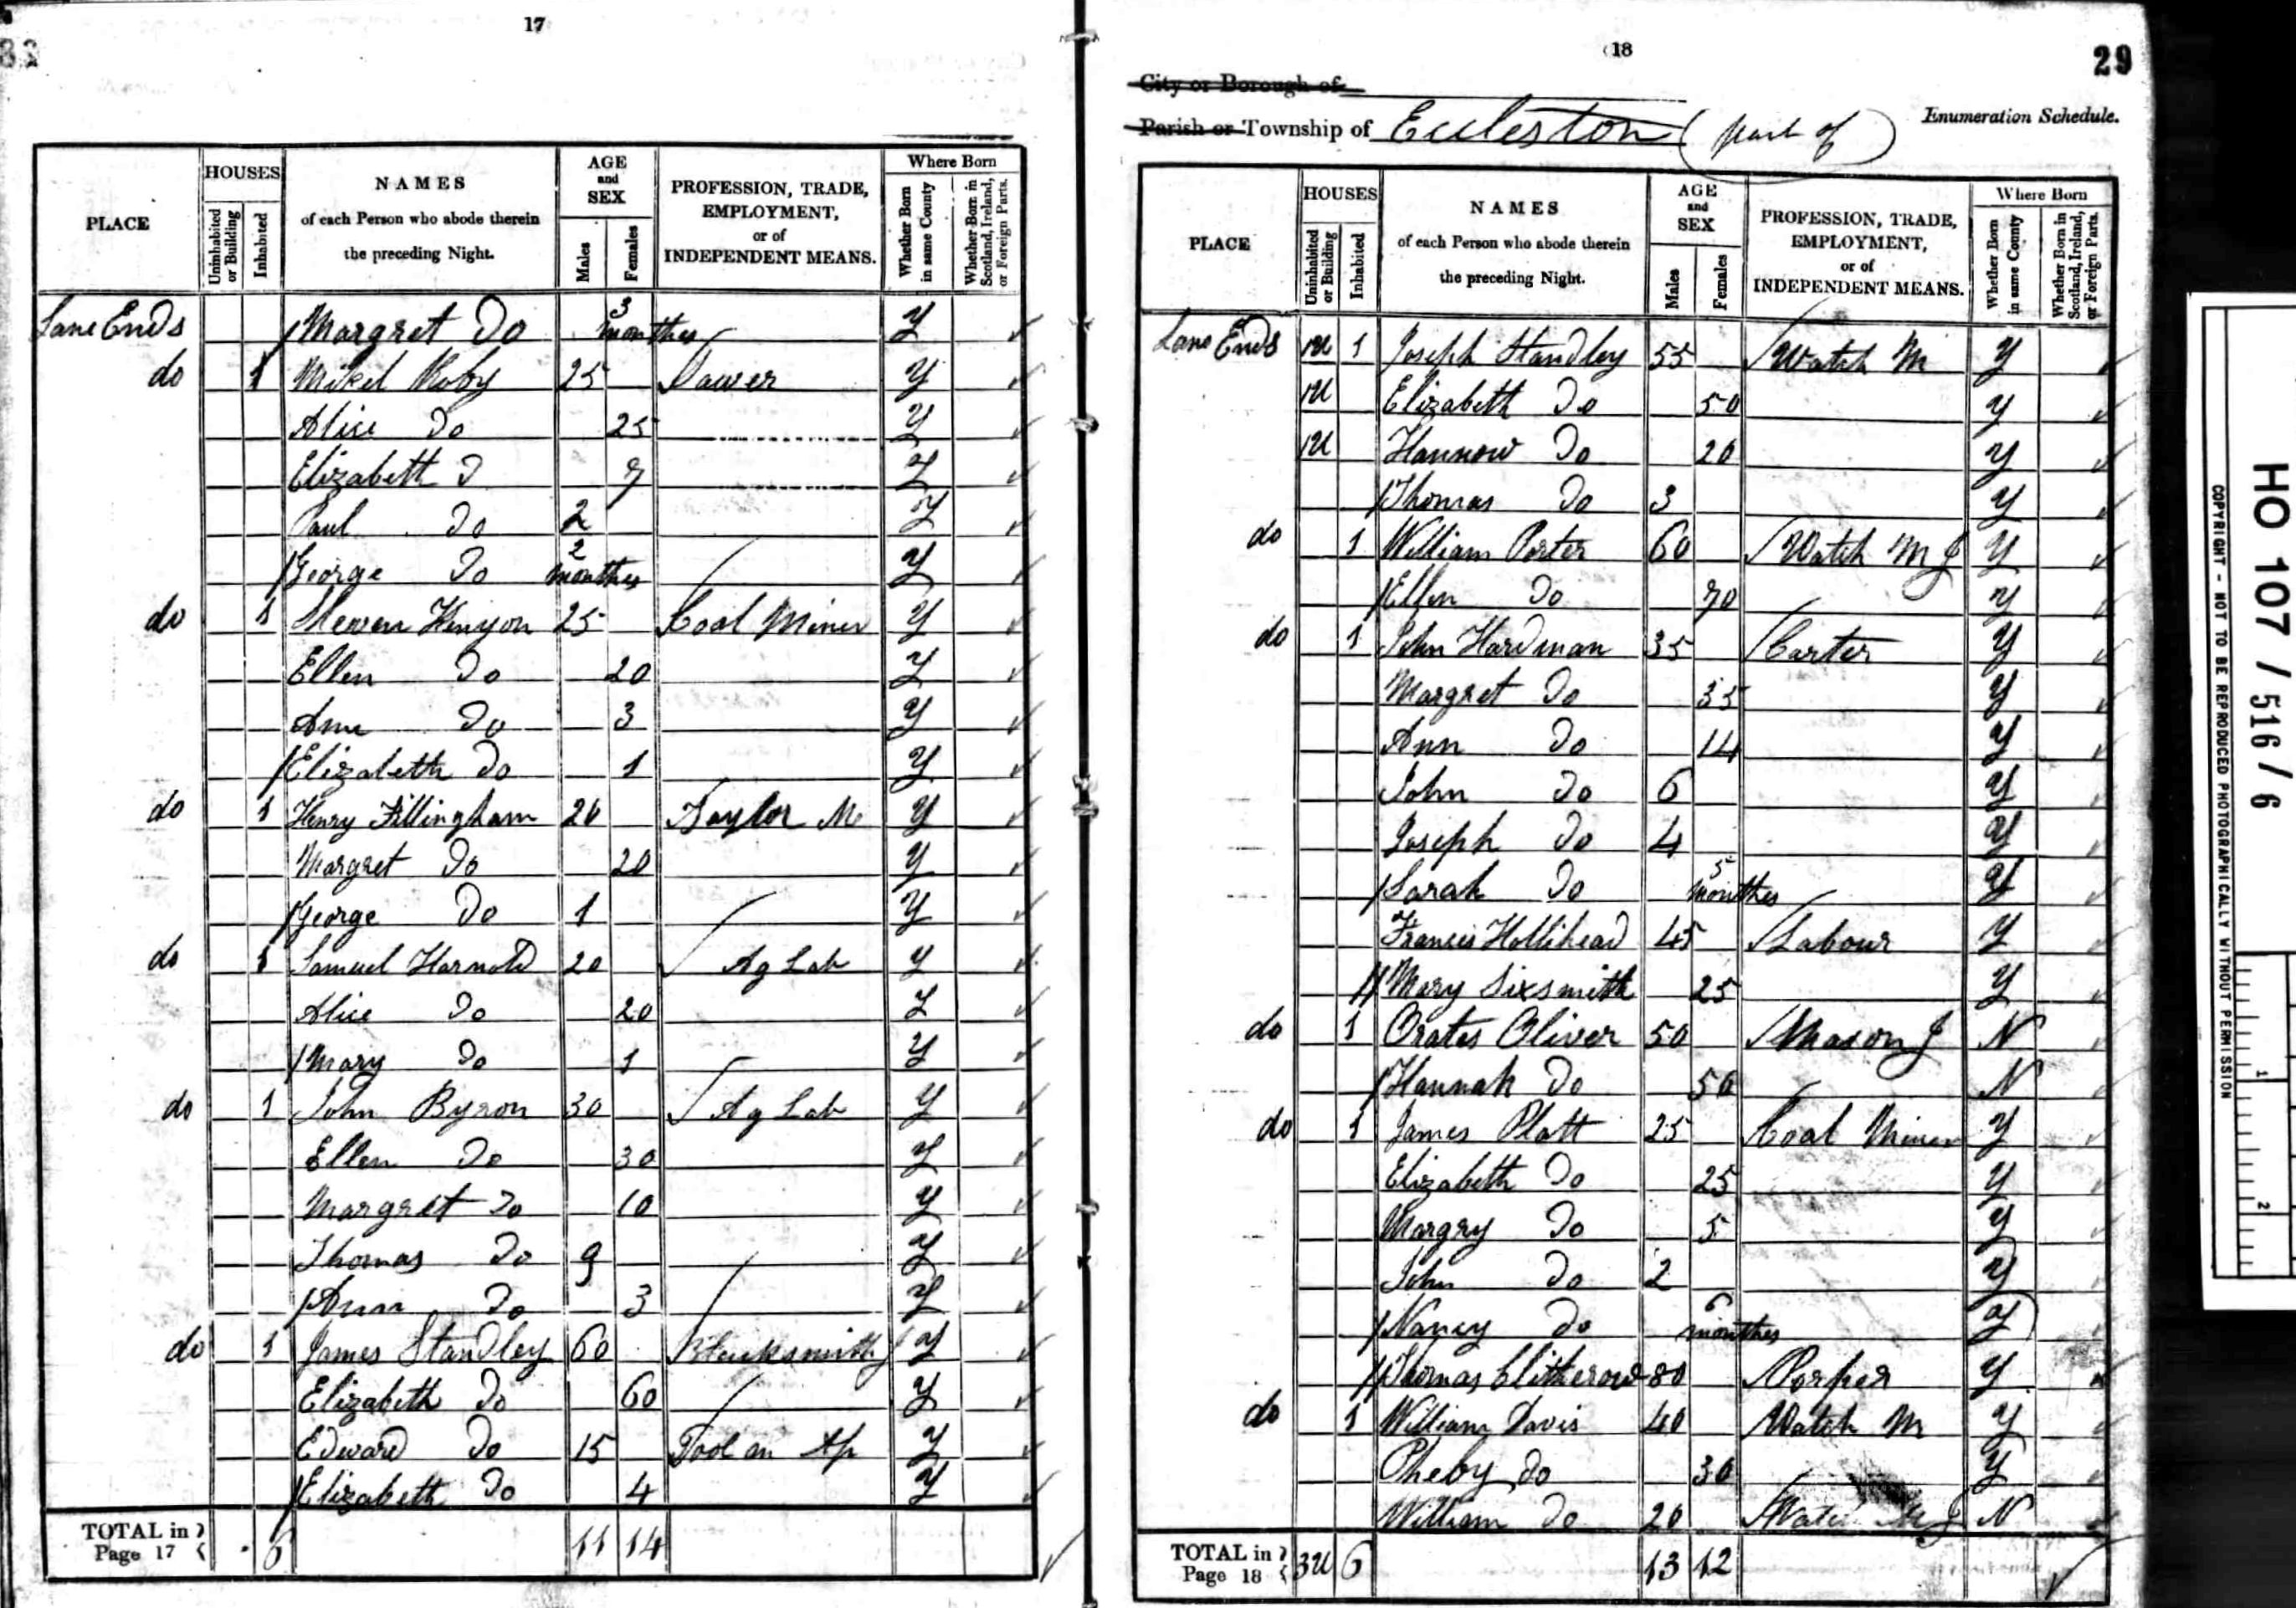 17
PLACE
HOUSES
Uninhabited or Building
Inhabited
NAMES
of each Person who abode therein
the preceding Night.
AGE
and
SEX
Males
Females
PROFESSION, TRADE,
EMPLOYMENT,
or of
INDEPENDENT MEANS.
Where Born
Whether Born in same County
Whether Born in Scotland, Ireland, or Foreign Parts.
Lane Ends Margret Do 3 monthes Y
do 1 Mikel Roby 25 Sawer Y
Alice Do 25 Y
Elizabeth D 7 Y
Paul Do 2 Y
George Do 2 monthes Y
do 1 Kenyon 25 Coal Miner Y
Ellen Do 20 Y
Ann Do 3 Y
Elizabeth Do 1 Y
do 1 Henry Fillingham 20 Taylor M Y
Margret Do 20 Y
George Do 1 Y
do 1 Samuel Harnold 20 Ag Lab Y
Alice Do 20 Y
Mary Do 1 Y
do 1 John Byron 30 Ag Lab Y
Ellen Do 30 Y
Margret Do 10 Y
Thomas Do 9 Y
Ann Do 3 Y
do 1 James Standley 60 Blacksmith Y
Elizabeth Do 60 Y
Edward Do 15 Tool Ap Y
Elizabeth Do 4 Y
TOTAL in Page 17 6 11 14
18
29
City or Borough of
Parish or Township of Eccleston (part of)
Enumeration Schedule.
PLACE
HOUSES
Uninhabited or Building
Inhabited
NAMES
of each Person who abode therein
the preceding Night.
AGE
and
SEX
Males
Females
PROFESSION, TRADE,
EMPLOYMENT,
or of
INDEPENDENT MEANS.
Where Born
Whether Born in same County
Whether Born in Scotland, Ireland, or Foreign Parts.
Lane Ends 1U 1 Joseph Standley 55 Watch M Y
1U Elizabeth Do 50 Y
1U Hannow Do 20 Y
Thomas Do 3 Y
do 1 William Porter 60 Watch M J Y
Ellen Do 70 Y
do 1 John Hardman 35 Carter Y
Margret Do 35 Y
Ann Do 14 Y
John Do 6 Y
Joseph Do 4 Y
Sarah Do 5 monthes Y
Francis Hollihead 45 Labour Y
Mary Sixsmith 25 Y
do 1 Orates Oliver 50 Mason J N
Hannah Do 50 N
do 1 James Platt 25 Coal Miner Y
Elizabeth Do 25 Y
Margry Do 5 Y
John Do 2 Y
Nancy Do 6 monthes Y
Thomas Clitherow 80 Y
do 1 William Davis 40 Watch M Y
Pheby Do 30 Y
William Do 20 M J N
TOTAL in Page 18 3U 6 13 12
HO 107 / 516 / 6
COPYRIGHT - NOT TO BE REPRODUCED PHOTOGRAPHICALLY WITHOUT PERMISSION
1
2